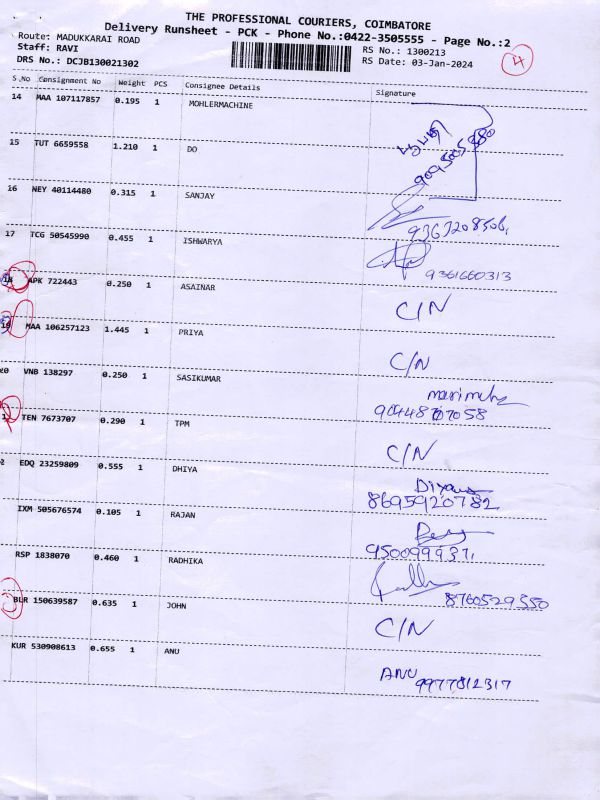 THE PROFESSIONAL COURIERS, COIMBATORE
Delivery Runsheet - PCK - Phone No.:0422-3505555 - Page No.:2
Route: MADUKKARAI ROAD RS No.: 1300213
Staff: RAVI RS Date: 03-Jan-2024 4
DRS No.: DCJB130021302
S.No Consignment No Weight PCS Consignee Details Signature
14 MAA 107117857 0.195 1 MOHLERMACHINE
15 TUT 6659558 1.210 1 DO
16 NEY 40114480 0.315 1 SANJAY
17 TCG 50545990 0.455 1 ISHWARYA
9361660313
18 APK 722443 0.250 1 ASAINAR C/N
19 MAA 106257123 1.445 1 PRIYA
C/N
20 VNB 138297 0.250 1 SASIKUMAR
TEN 7673707 0.290 1 TPM
C/N
2 EDQ 23259809 0.555 1 DHIYA
8695920782
IXM 505676574 0.105 1 RAJAN
RSP 1838070 0.460 1 RADHIKA
8760529550
BLR 150639587 0.635 1 JOHN
C/N
KUR 530908613 0.655 1 ANU
ANU
9977812317